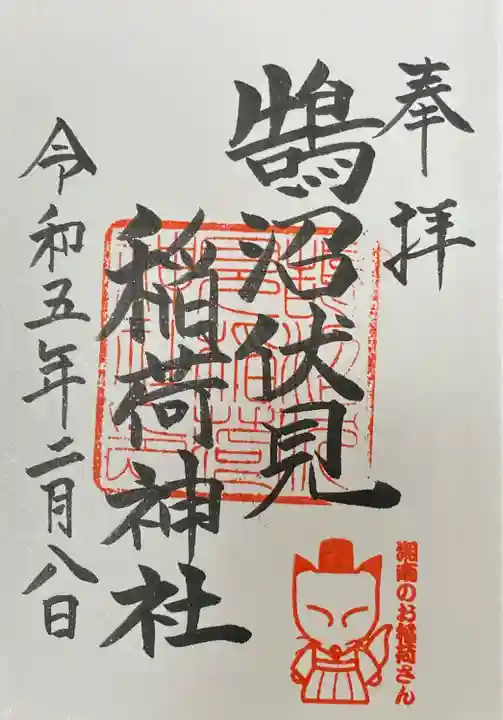 奉拝
鵠沼伏見
稲荷神社
令和五年二月八日
湘南のお稲荷さん